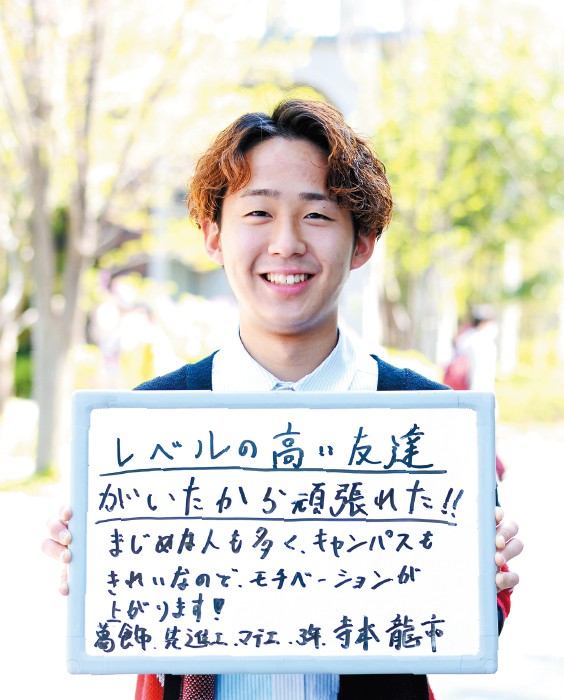 レベルの高い友達
がいたから頑張れた!!
まじめな人も多く、キャンパスも
きれいなので、モチベーションが
上がります!
葛飾、先進工、マテエ、3年、寺本龍市